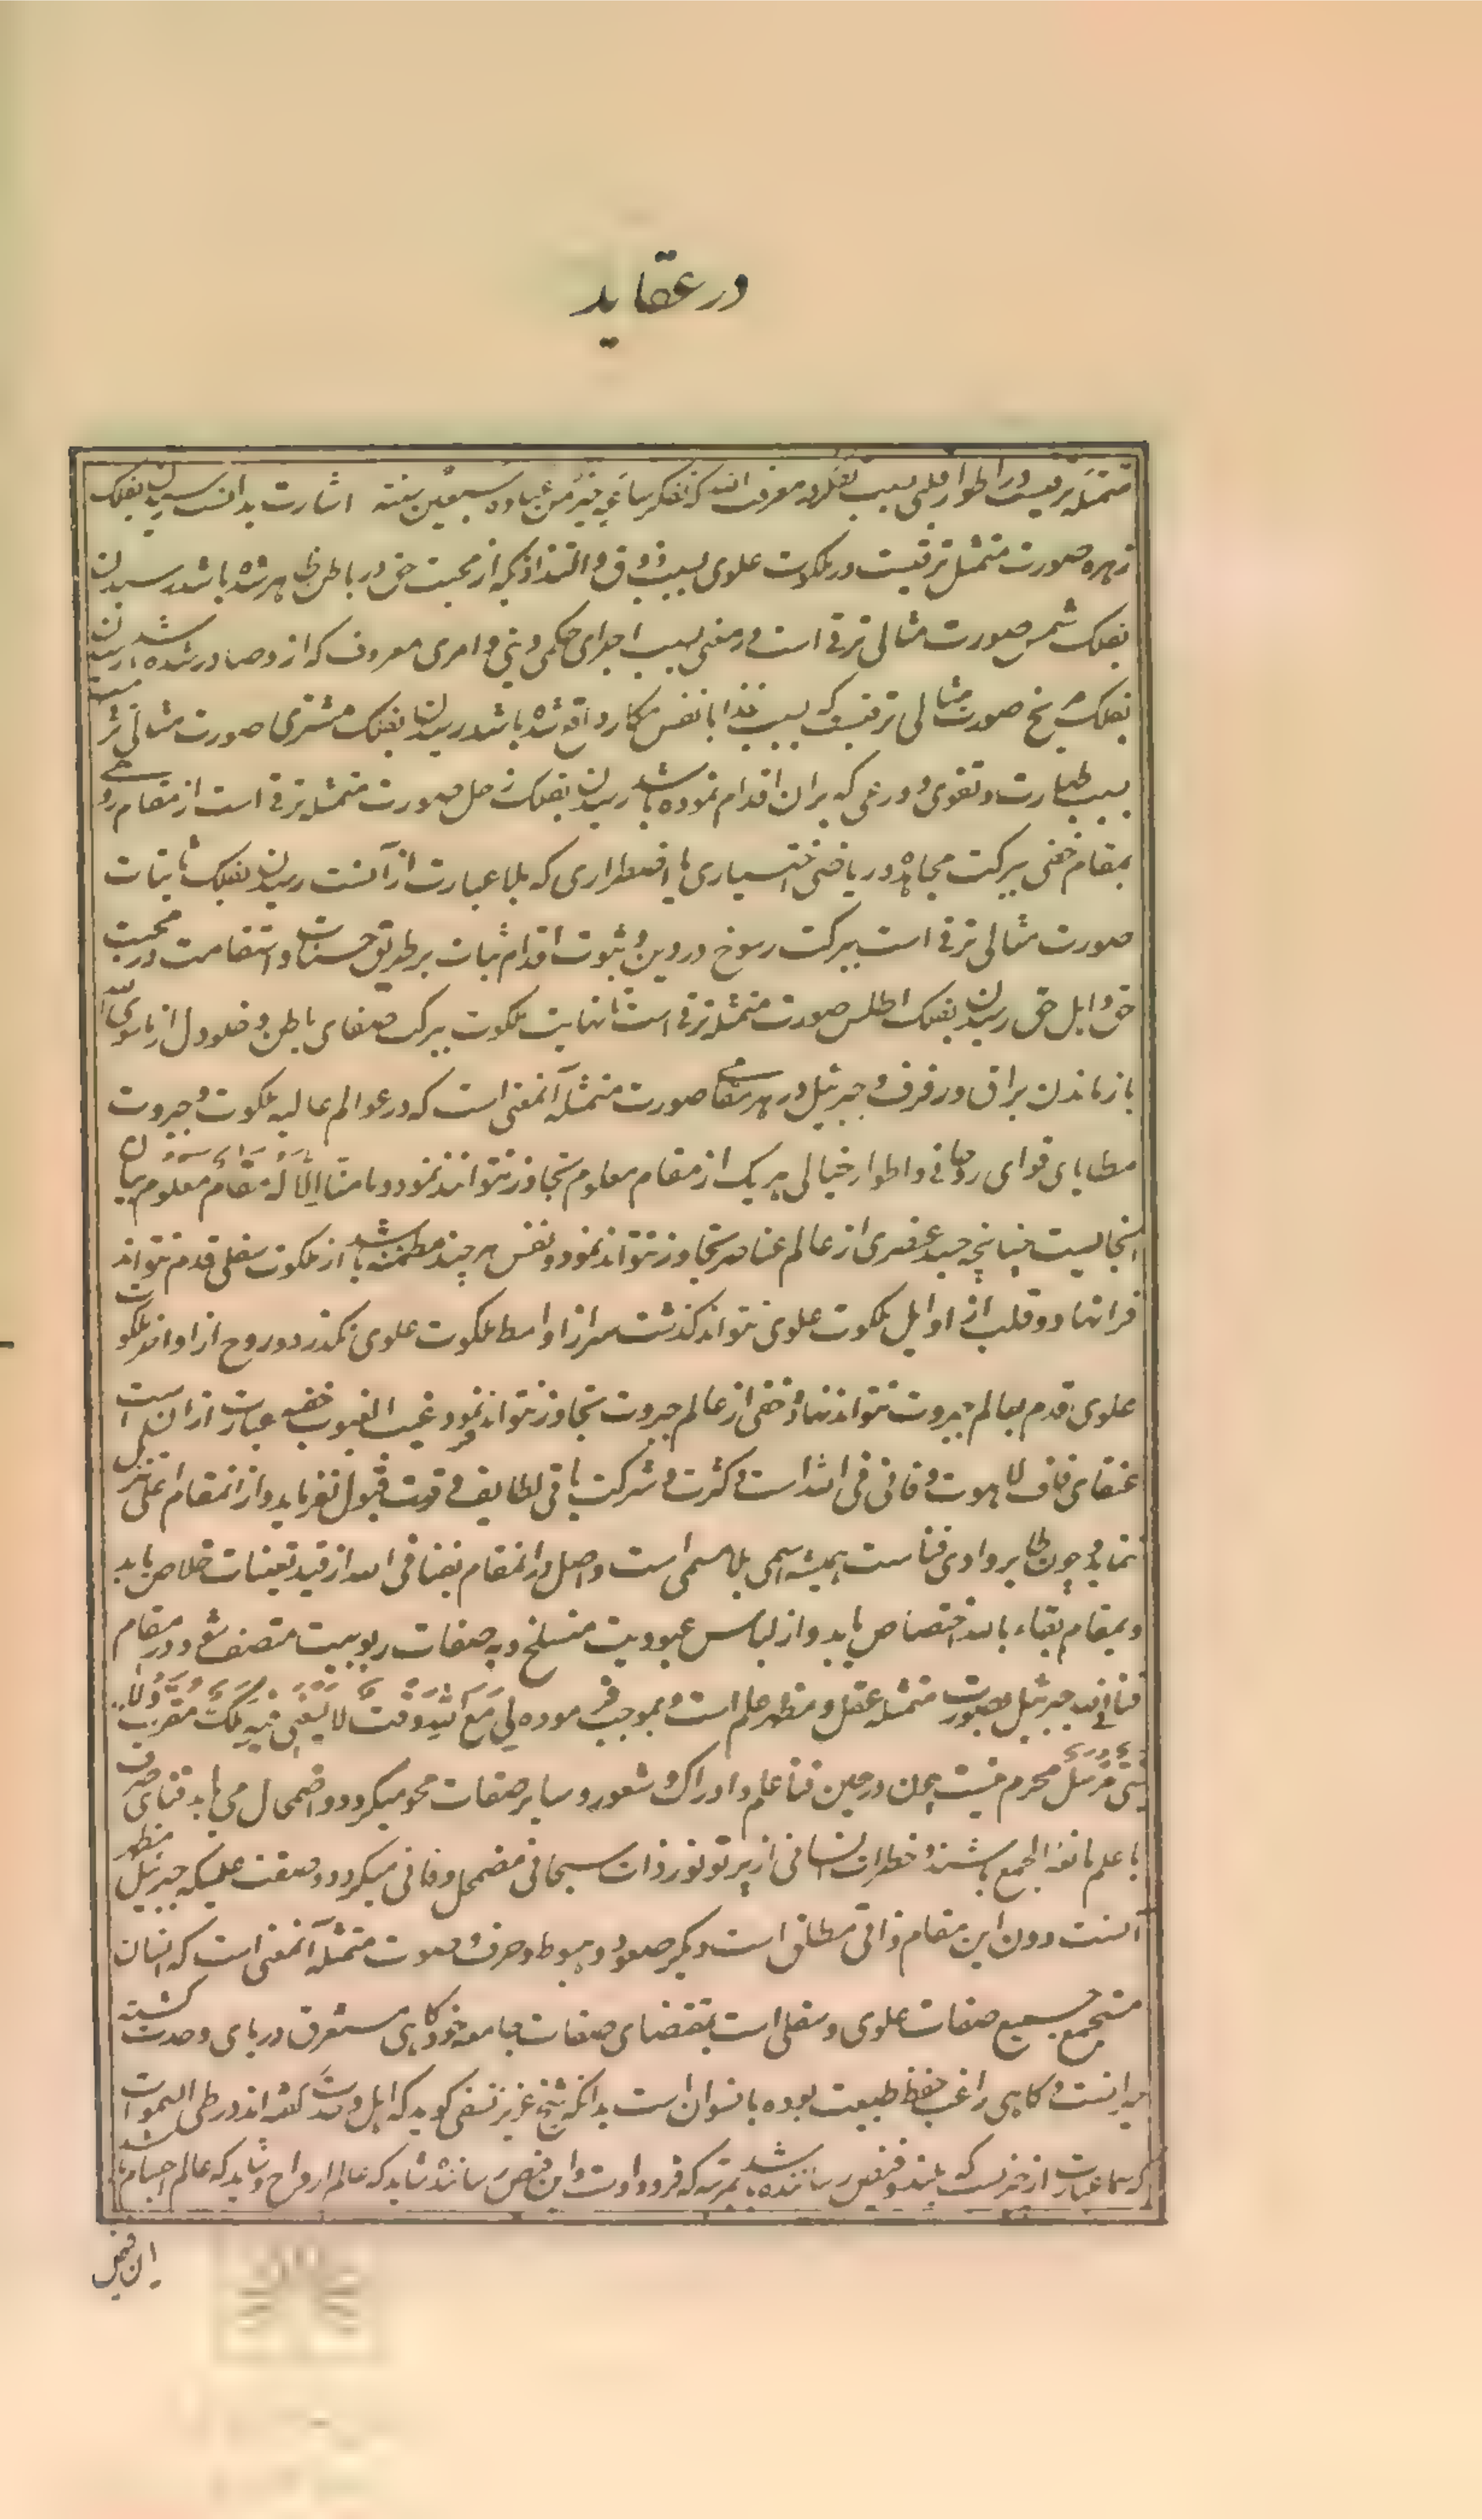 در عقاید
متمثله ترقیست در اطوار قلبی بسبب تفکر در معرفت الله که تفکر ساعة خیر من عبادة سبعین سنة اشارت بدانست رسیدن بفلک
زهره صورت متمثل ترقیست در ملکوت علوی بسبب ذوق و التذاذیکه از محبت حق در باطن ظاهر شده باشد رسیدن
بفلک شمس صورت مثالی ترقی است در معنی بسبب اجرای حکمی دینی و امری معروف که از و صادر شده باشد رسیدن
بفلک مریخ صورت مثالی ترقیست که بسبب غذا با نفس مکار واقع شده باشد رسیدن بفلک مشتری صورت مثالی
بسبب طهارت و تقوی و ورعی که بران اقدام نموده باشد رسیدن بفلک زحل صورت متمثله ترقی است از مقام روحی
بمقام خفی ببرکت مجاهده و ریاضتی اختیاری یا اضطراری که بلا عبارت از آنست رسیدن بفلک ثابتات
صورت مثالی ترقی است ببرکت رسوخ در دین و ثبوت اقدام ثبات بر طریق حسنات و استقامت در محبت
حق و اهل حق رسیدن بفلک اطلس صورت متمثله ترقی است تا نهایت ملکوت ببرکت صفای باطن و خلو دل از ماسوی الله
بازماندن براق و رفرف و جبرئیل در هر مقامی صورت متمثله آنمعنی است که در عوالم عالیه ملکوت و جبروت
مطایای قوای روحانی و اطوار خیالی هریک از مقام معلوم تجاوز نتوانند نمود و ما منا الا له مقام معلوم بیان
اینحالیست چنانچه جسد عنصری از عالم عناصر تجاوز نتواند نمود و نفس هرچند مطمئنه باشد از ملکوت سفلی قدم نتواند
فرا نهاد و قلب از اوایل ملکوت علوی نتواند گذشت سر از اواسط ملکوت علوی نگذرد و روح از اواخر ملکوت
علوی قدم بعالم جبروت نتواند نهاد و خفی از عالم جبروت تجاوز نتواند نمود و غیب الغیوب خفیه عبارت از ان است
عنقای قاف لاهوت و فانی فی الله است و کثرت و شرکت باقی لطایف در قوت قبول نفرماید و از انمقام اعلی تنزل
ننماید و چون طایر وادی فناست همیشه اسمی بلا مسمی است واصل در انمقام بفنا فی الله از قید تعینات خلاص یابد
و بمقام بقاء بالله اختصاص یابد و از لباس عبودیت منسلخ و به صفات ربوبیت متصف شود و در مقام
فنا فی الله جبرئیل بصورت متمثله عقل و مظهر علم است و بموجب فرموده لی مع الله وقت لا یسعنی فیه ملک مقرب ولا
نبی مرسل محرم نیست چون در حین فنا علم و ادراک و شعور و سایر صفات محو میگردد و اضمحلال می یابد فنای صرف
با علم مانعة الجمع باشند و خطرات نفسانی از پرتو نور ذات سبحانی مضمحل و فانی میگردد و صفت علمیکه جبرئیل مظهر
آنست دون این مقام ذاتی مطلق است دیگر صعود و هبوط و حرف و صوت متمثله آنمعنی است که انسان
مستجمع جمیع صفات علوی و سفلی است بمقتضای صفات جامعه خود گاهی مستغرق دریای وحدت گشته
میرانست و گاهی راغب حفظ طبیعت بوده با نسوان است بدانکه شیخ عزیز نسفی گوید که اهل وحدت گفته اند در طی السموات
که سما عبارت از چیزیست که بلند و فیض رساننده باشد بمرتبه که فرود اوست و این فیض رساننده شاید که عالم ارواح و شاید که عالم اجسام باشد
ان فیض